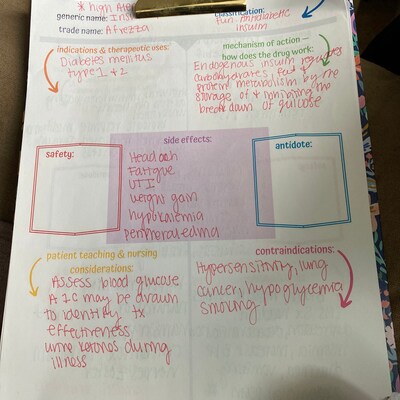 * high Aler
generic name: Ins
trade name: Afrezza
classification:
fun. Antidiabetic
insulin
indications & therapeutic uses:
Diabetes mellitus
type 1 & 2
mechanism of action —
how does the drug work:
Endogenous insulin regulates
carbohydrates, fat &
protein metabolism by the
storage of & inhibiting the
breakdown of glucose
safety:
side effects:
Headach
Fatigue
UTI
weight gain
hypokalemia
peripheral edma
antidote:
patient teaching & nursing
considerations:
Assess blood glucose
A1C may be drawn
to identify tx
effectiveness
urine ketones during
illness
contraindications:
Hypersensitivity, lung
cancer, hypoglycemia
smoking